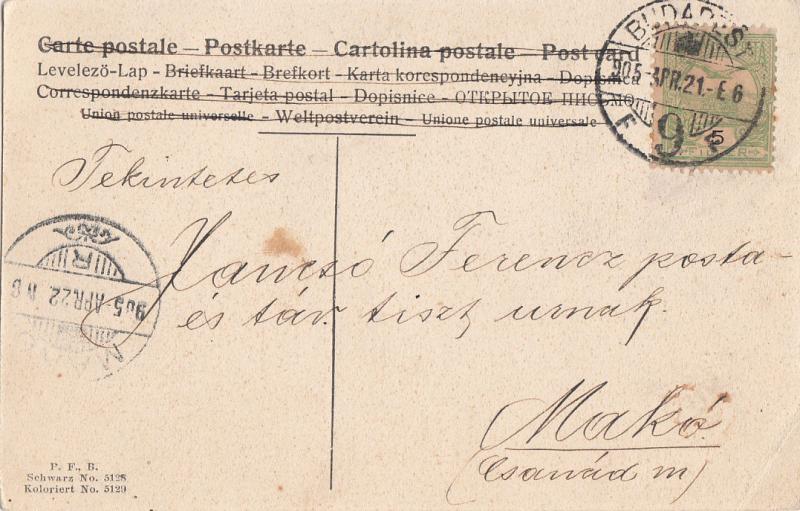 Carte postale – Postkarte – Cartolina postale – Post card
Levelező-Lap - Briefkaart - Brefkort - Karta korespondencyjna - Dopisnica
Correspondenzkarte - Tarjeta postal - Dopisnice - ОТКРЫТОЕ ПИСЬМО
Union postale universelle - Weltpostverein - Unione postale universale
BUDAPEST
905 APR.21.-E 6
9
5
Tekintetes
Jancsó Ferencz posta-
és táv. tiszt urnak.
Makó.
(Csanád m)
905-APR.22.
P. F. B.
Schwarz No. 5128
Koloriert No. 5129